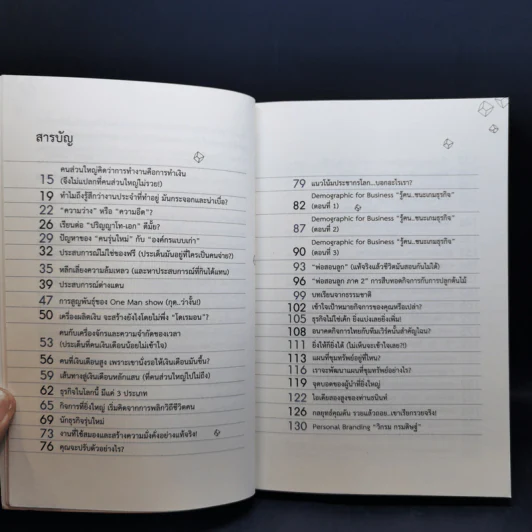 สารบัญ
คนส่วนใหญ่คิดว่าการทำงานคือการทำเงิน
15 (จึงไม่แปลกที่คนส่วนใหญ่ไม่รวย!)
19 ทำไมถึงรู้สึกว่างานประจำที่ทำอยู่ มันกระจอกและน่าเบื่อ?
22 "ความว่าง" หรือ "ความอึด"?
26 เรียนต่อ "ปริญญาโท-เอก" ดีมั้ย?
29 ปัญหาของ "คนรุ่นใหม่" กับ "องค์กรแบบเก่า"
32 ประสบการณ์ไม่ใช่ของฟรี (ประเด็นมันอยู่ที่ใครเป็นคนจ่าย?)
35 หลีกเลี่ยงความล้มเหลว (และหาประสบการณ์ที่กินได้แทน)
39 ประสบการณ์ต่างแดน
47 การสูญพันธุ์ของ One Man show (กุด..ว่างั้น!)
50 เครื่องผลิตเงิน จะสร้างยังไงโดยไม่พึ่ง "โดเรมอน"?
คนกับเครื่องจักรและความจำกัดของเวลา
53 (ประเด็นที่คนเงินเดือนน้อยไม่เข้าใจ)
56 คนที่เงินเดือนสูง เพราะเขานั่งรอให้เงินเดือนมันขึ้น?
59 เส้นทางสู่เงินเดือนหลักแสน (ที่คนส่วนใหญ่ไปไม่ถึง)
62 ธุรกิจในโลกนี้ มีแค่ 3 ประเภท
65 กิจการที่ยิ่งใหญ่ เริ่มคิดจากการพลิกวิถีชีวิตคน
69 นักธุรกิจรุ่นใหม่
73 งานที่ใช้สมองและสร้างความมั่งคั่งอย่างแท้จริง!
76 คุณจะปรับตัวอย่างไร?
79 แนวโน้มประชากรโลก...บอกอะไรเรา?
Demographic for Business "รู้คน..ชนะเกมธุรกิจ"
82 (ตอนที่ 1)
Demographic for Business "รู้คน..ชนะเกมธุรกิจ"
87 (ตอนที่ 2)
Demographic for Business "รู้คน...ชนะเกมธุรกิจ"
90 (ตอนที่ 3)
93 "พ่อสอนลูก" (แท้จริงแล้วชีวิตมันสอนกันไม่ได้)
96 "พ่อสอนลูก ภาค 2" การสืบทอดกิจการกับการปลูกต้นไม้
99 บทเรียนจากธรรมชาติ
102 เข้าใจเป้าหมายกิจการของคุณหรือเปล่า?
105 ธุรกิจไม่ใช่เค้ก ยิ่งแบ่งเลยยิ่งเพิ่ม!
108 อนาคตกิจการไทยกับทีมเวิร์คนั้นสำคัญไฉน?
111 ยิ่งให้ก็ยิ่งได้ (ไม่เห็นจะเข้าใจเลย?!)
113 แผนที่ขุมทรัพย์อยู่ที่ไหน?
116 เราจะพัฒนาแผนที่ขุมทรัพย์อย่างไร?
119 จุดบอดของผู้นำที่ยิ่งใหญ่
122 ไอเดียสองสูงของท่านธนินท์
126 กลยุทธ์คุณตัน รวยแล้วถอย...เขาเรียกรวยจริง!
130 Personal Branding "วิกรม กรมดิษฐ์"